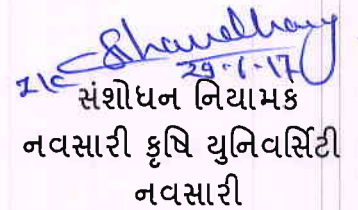 I/C Chaudhary
29-6-17
સંશોધન નિયામક
નવસારી કૃષિ યુનિવર્સિટી
નવસારી